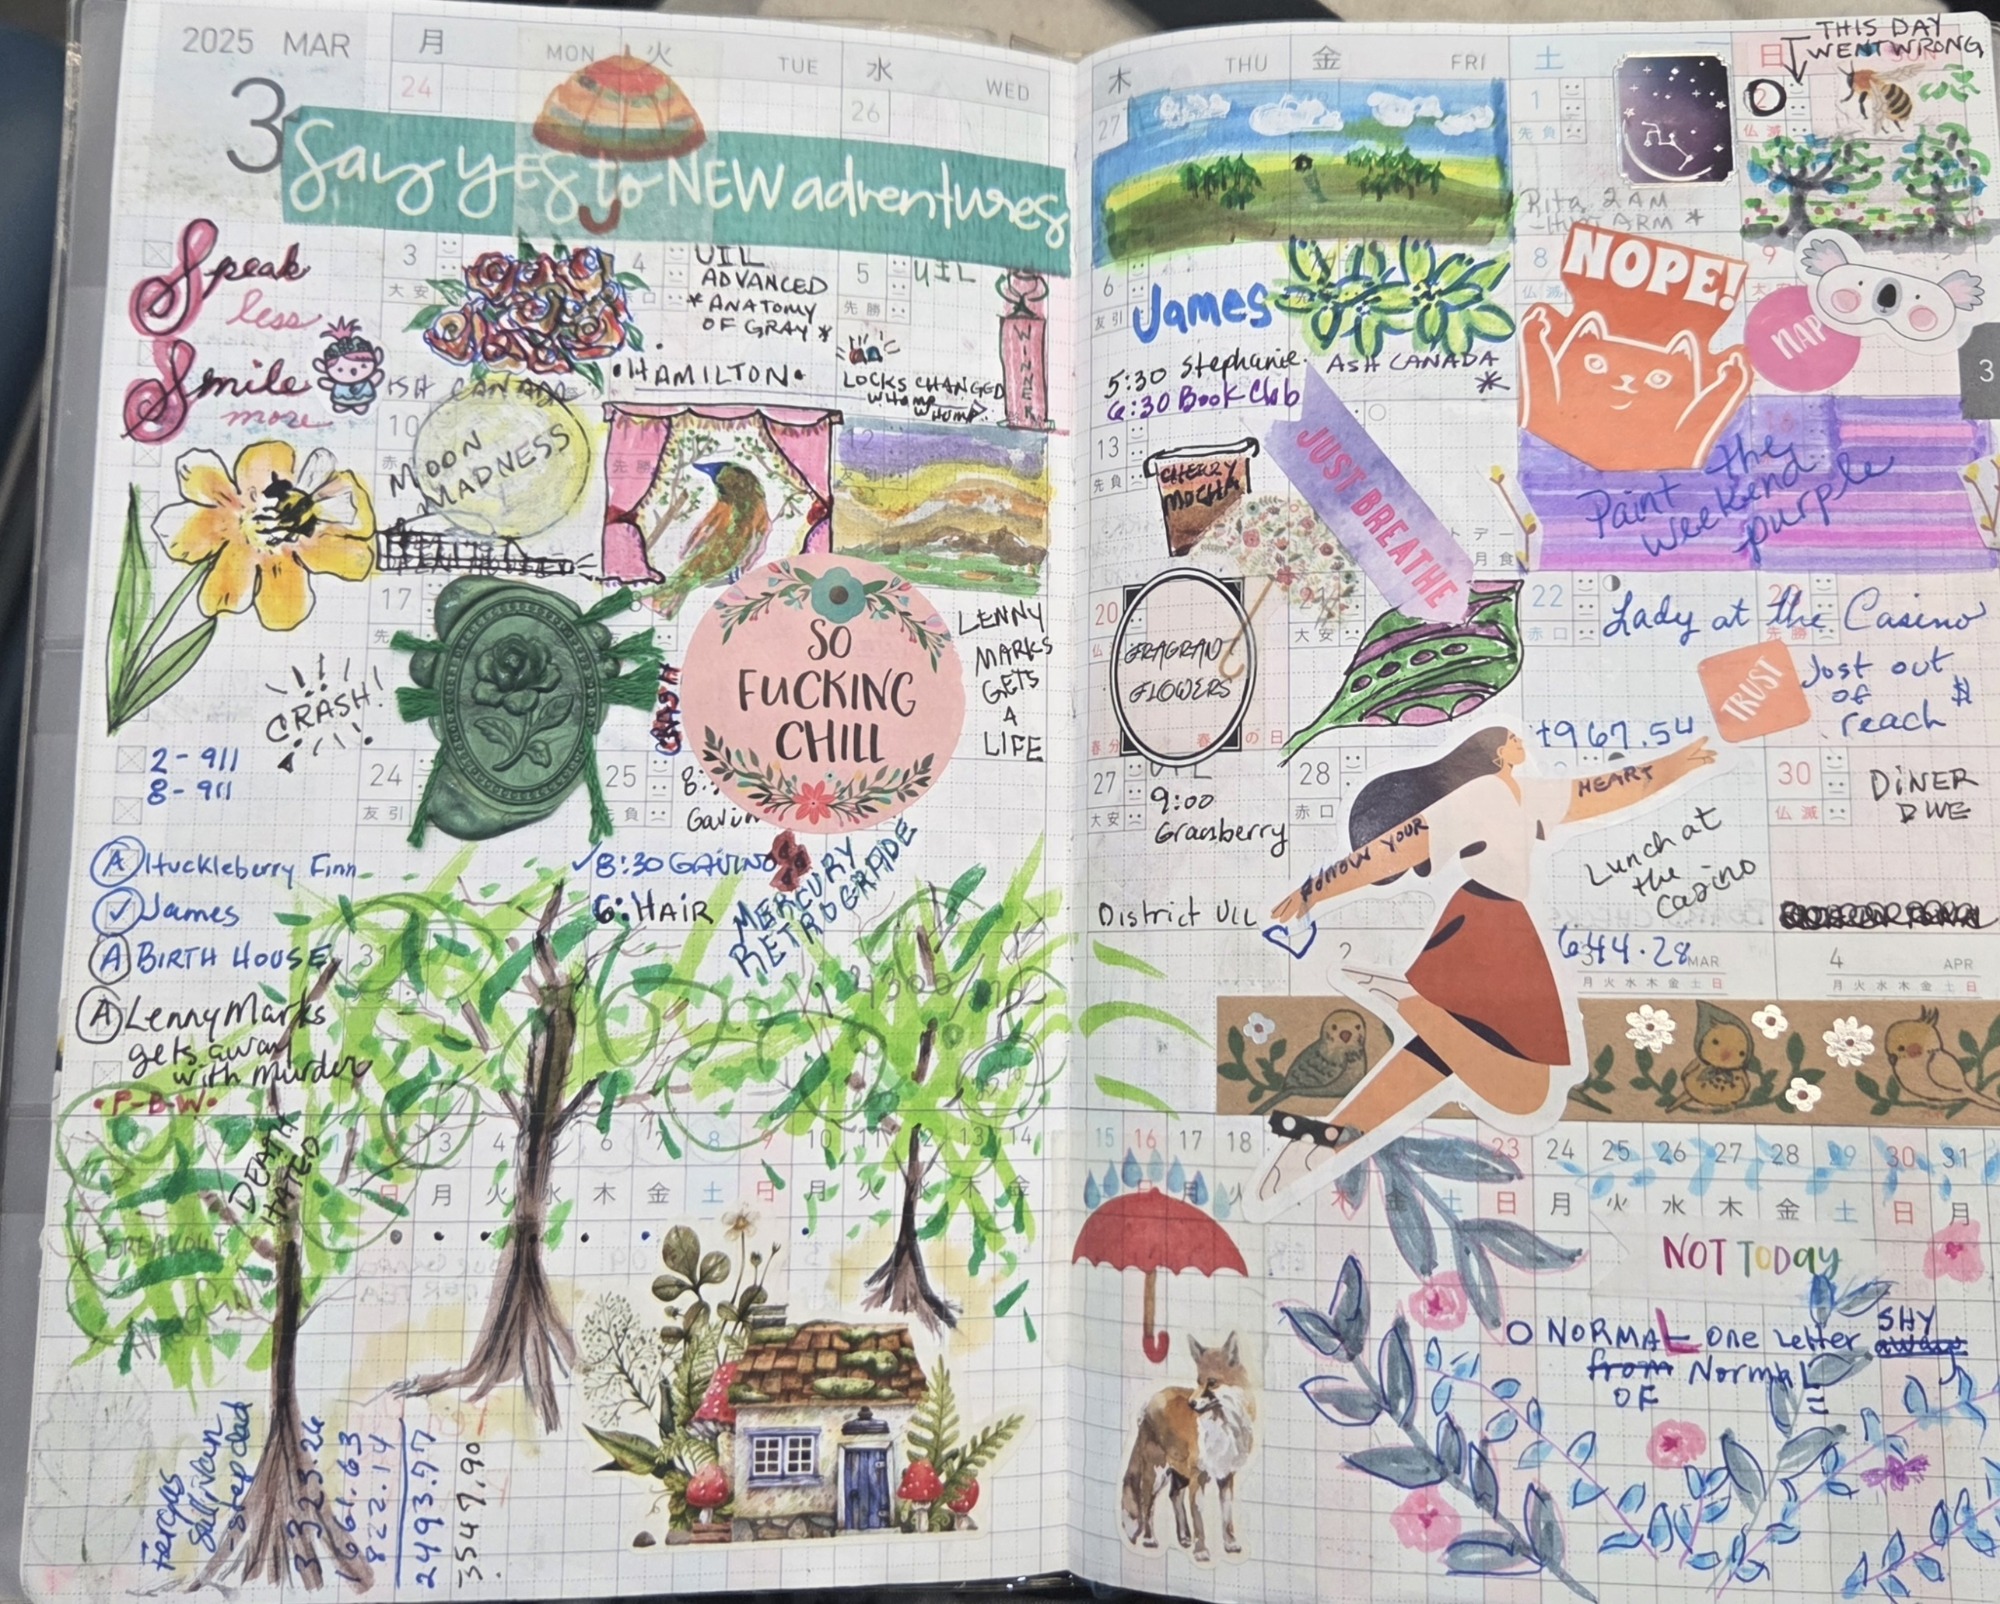 2025 MAR
3
月 MON
火 TUE
水 WED
24
26
Say yes to NEW adventures
Speak
less
Smile
more
3
大安
4
UIL
ADVANCED
*ANATOMY
OF GRAY*
•HAMILTON•
5
UIL
先勝
LOCKS CHANGED
WHOMP
WHOMP
WINNER
ASH CANADA
10
MOON
MADNESS
先勝
12
友引
17
CRASH!
SO
FUCKING
CHILL
CRASH
LENNY
MARKS
GETS
A
LIFE
2-911
8-911
24
友引
25
先負
8:
Gavin
A Huckleberry Finn
✓ James
A BIRTH HOUSE
A Lenny Marks
gets away
with murder
•F-B-W•
✓8:30 GAVINO
6: HAIR
MERCURY
RETROGRADE
31
DEATH
HATED
BREAKOUT
3 4 5 6 7 8 9 10 11 12 13 14
日 月 火 水 木 金 土 日 月 火 水 木 金
Fergus
Sullivan
-stepdad
3323.26
1661.63
822.14
2493.77
3547.90
木 THU
金 FRI
土
日 SUN
THIS DAY
WENT WRONG
27
1
先負
2
仏滅
Rita 2AM
-HURT ARM *
6
友引
James
5:30 Stephanie
6:30 Book Club
ASH CANADA
*
8
仏滅
NOPE!
9
大安
NAP
3
13
先負
CHERRY
MOCHA
JUST BREATHE
16
Paint the
weekend
purple
20
FRAGRANT
FLOWERS
春分の日
21
大安
22
赤口
23
先勝
Lady at the Casino
+967.54
TRUST
Just out
of $
reach
27
大安
UIL
9:00
Granberry
District UIL
28
赤口
FOLLOW YOUR
HEART
Lunch at
the
casino
644.28
30
仏滅
DINER
DWE
3 MAR
月 火 水 木 金 土 日
4 APR
月 火 水 木 金 土 日
15 16 17 18 23 24 25 26 27 28 29 30 31
土 日 月 火 木 金 土 日 月 火 水 木 金 土 日 月
NOT TODAY
O NORMAL one letter SHY
from Normal
OF